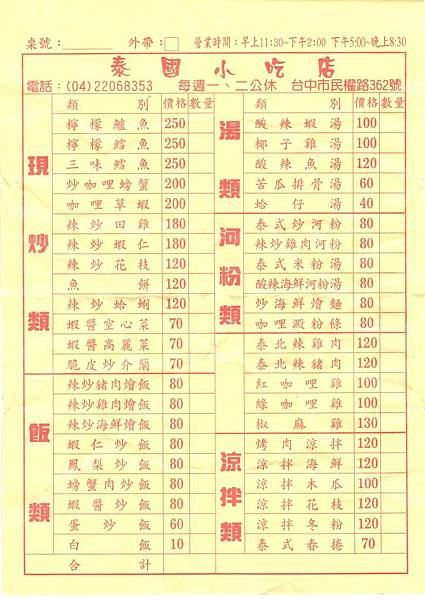 桌號:______ 外帶:□ 營業時間:早上11:30~下午2:00 下午5:00~晚上8:30
泰國小吃店
電話:(04)22068353 每週一、二公休 台中市民權路362號
類別 價格 數量
現炒類
檸檬鱸魚 250
檸檬鱈魚 250
三味鱈魚 250
炒咖哩螃蟹 200
咖哩草蝦 200
辣炒田雞 180
辣炒蝦仁 180
辣炒花枝 120
魚餅 120
辣炒蛤蜊 120
蝦醬空心菜 70
蝦醬高麗菜 70
脆皮炒介蘭 70
飯類
辣炒豬肉燴飯 80
辣炒雞肉燴飯 80
辣炒海鮮燴飯 80
蝦仁炒飯 80
鳳梨炒飯 80
螃蟹肉炒飯 80
蝦醬炒飯 80
蛋炒飯 60
白飯 10
合計
類別 價格 數量
湯類
酸辣蝦湯 100
椰子雞湯 100
酸辣魚湯 120
苦瓜排骨湯 60
蛤仔湯 40
河粉類
泰式炒河粉 80
辣炒雞肉河粉 80
泰式米粉湯 80
酸辣海鮮河粉湯 80
炒海鮮燴麵 80
咖哩澱粉條 80
泰北辣雞肉 120
泰北辣豬肉 120
紅咖哩雞 100
綠咖哩雞 100
椒麻雞 130
涼拌類
烤肉涼拌 120
涼拌海鮮 120
涼拌木瓜 100
涼拌花枝 120
涼拌冬粉 120
泰式春捲 70